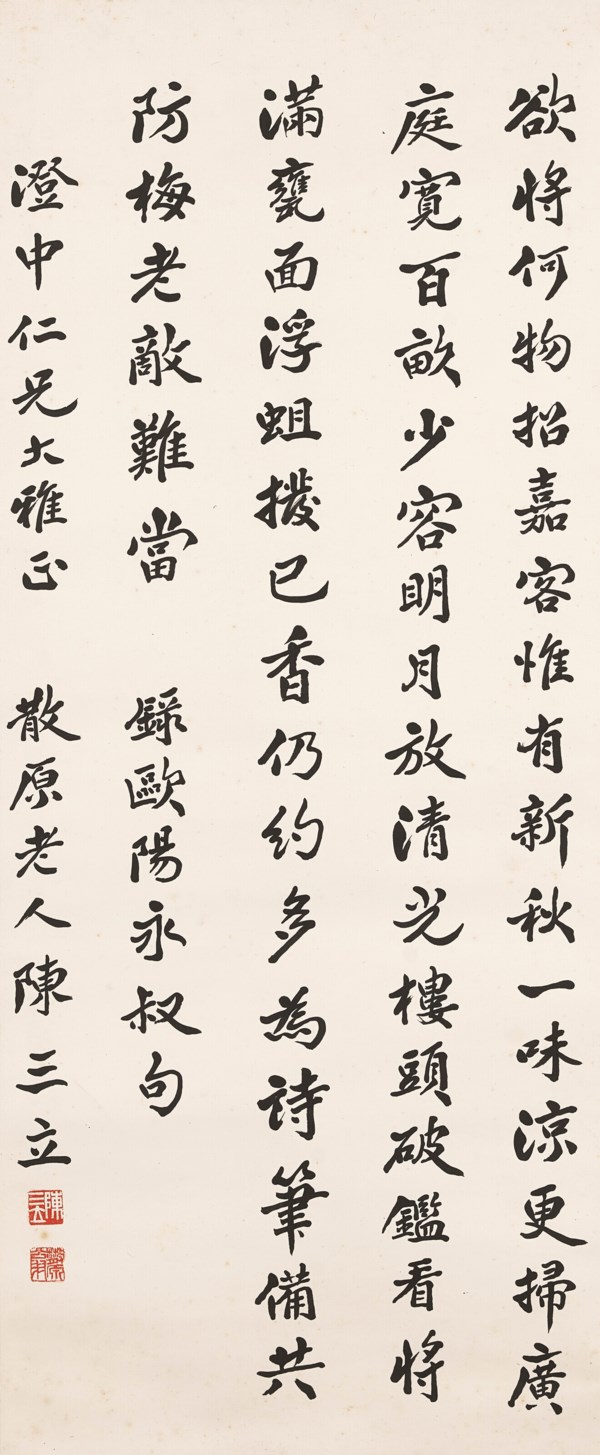 欲將何物招嘉客惟有新秋一味涼更掃廣
庭寬百畝少容明月放清光樓頭破鑑看將
滿甕面浮蛆撥已香仍約多為詩筆備共
防梅老敵難當 錄歐陽永叔句
澄中仁兄大雅正 散原老人陳三立
陳三立